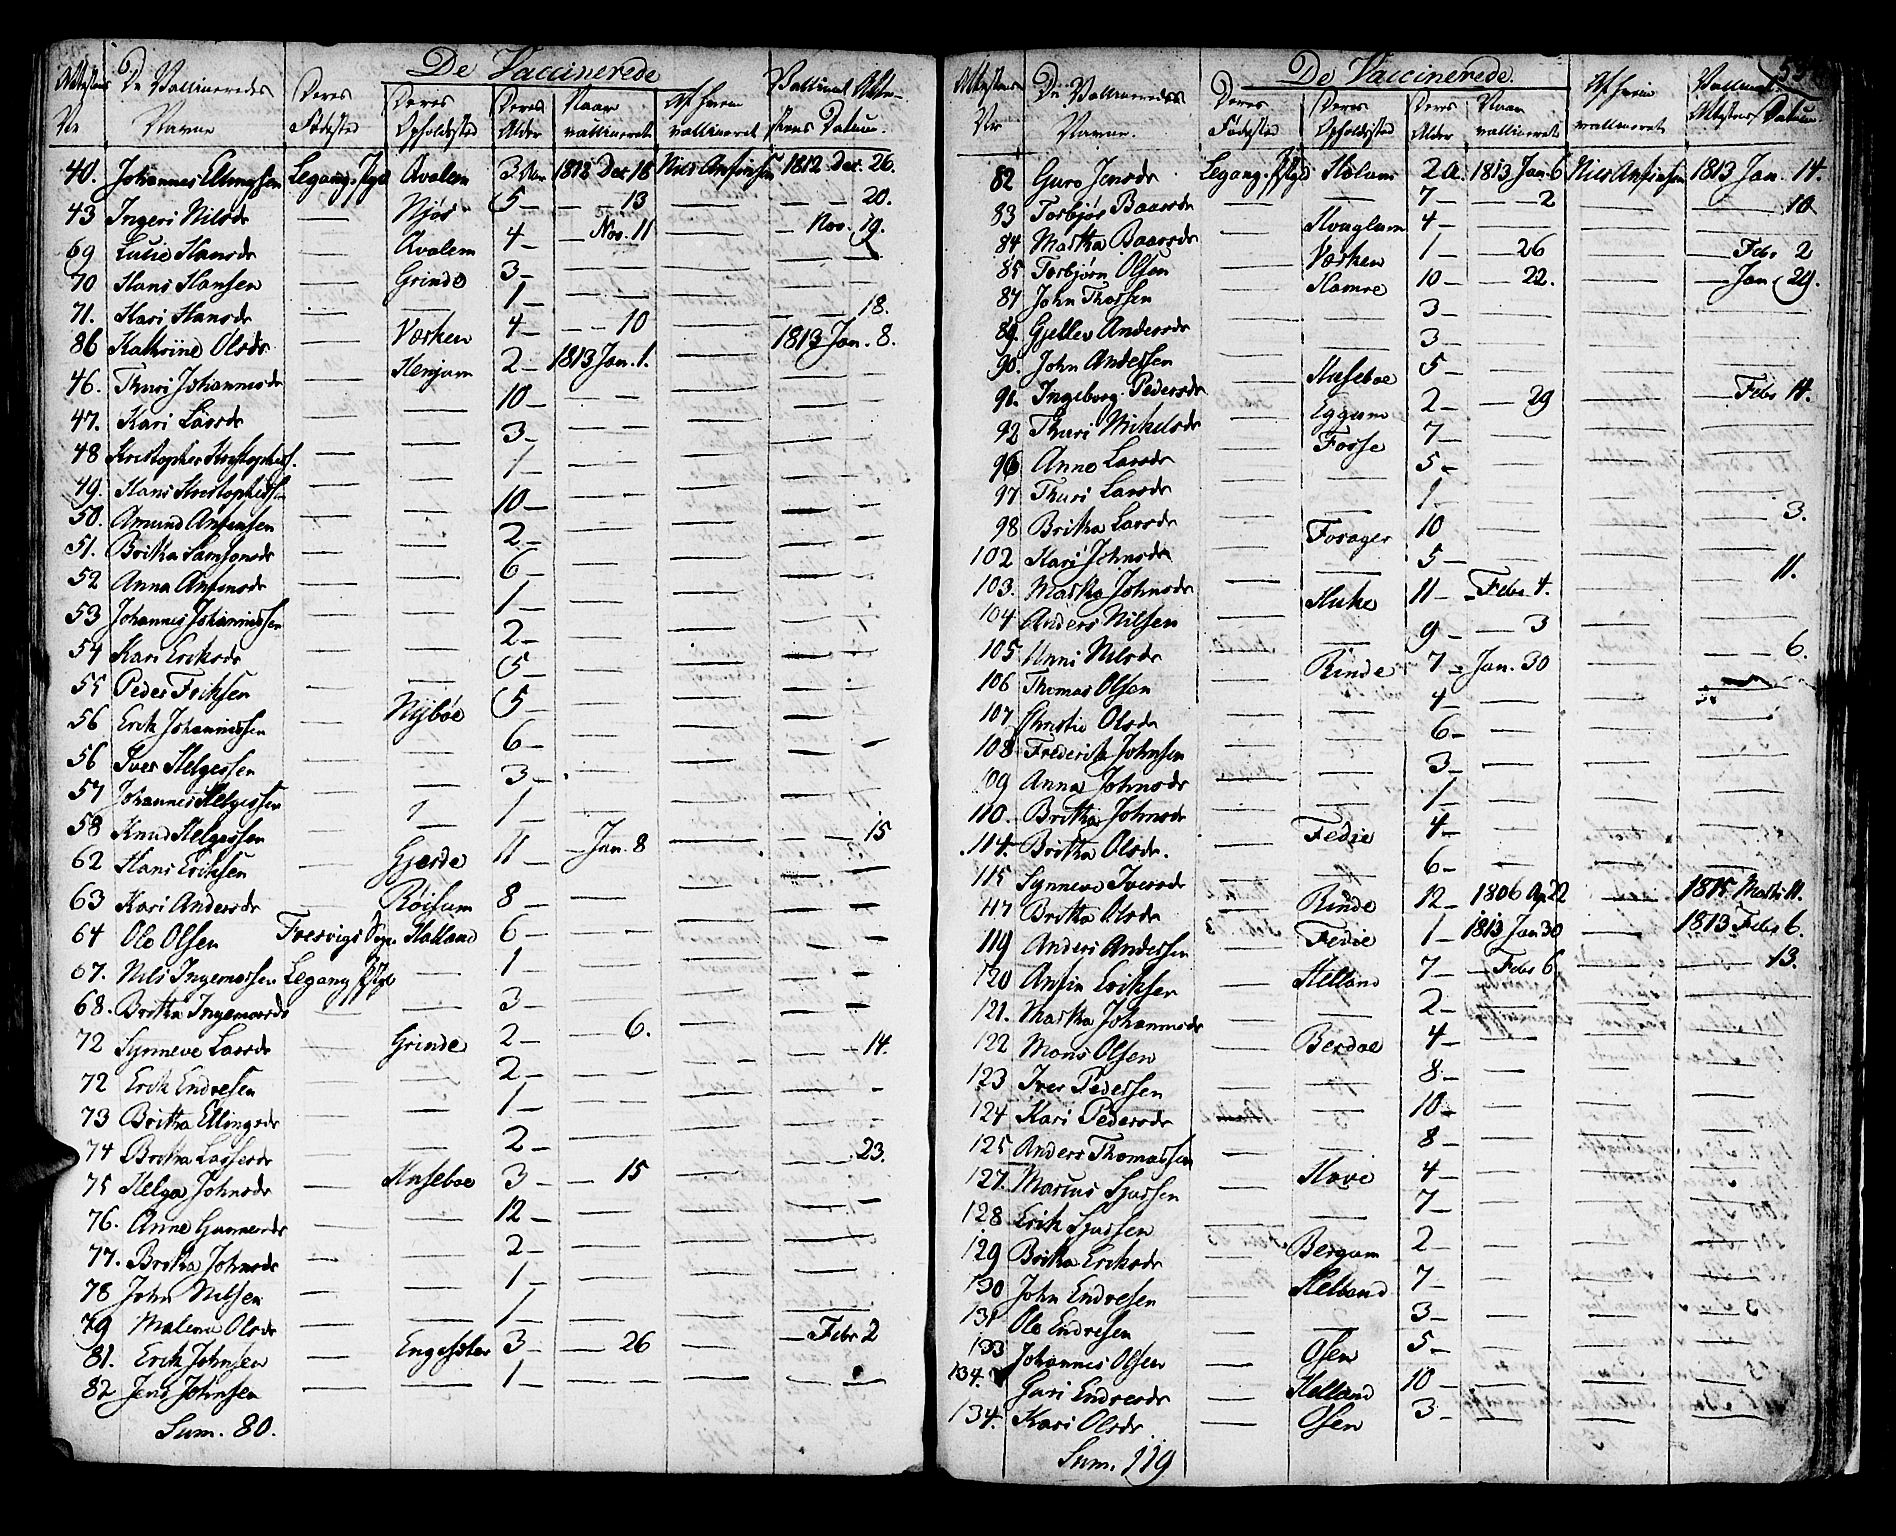 De Vaccinerede
Attestens No
De Vaccineredes Navne
Deres Fødested
Deres Opholdsted
Deres Alder
Naar vaccineret
Af hvem vaccineret
Vaccinat. Attestens Datum.
40. Johannes Ellingsen Leganger Pgd Qvalem 3 1812 Dec. 18 Nils Anfinsen 1812 Dec. 26.
43 Ingeri Nilsdr — Njøs 5 — — 13 — — — 20.
69 Lucie Hansdr — Qvalem 4 — Nov. 11 — — Nov. 19.
70 Hans Hansen — Grinde 3 — — — —
71. Kari Hansdr — — 1 — — — — 18.
86 Kathrine Olsdr — Værken 4 — — 10 — 1813 Jan. 8.
46. Thuri Johannesdr — Henjum 2 — 1813 Jan. 1. — —
47. Kari Larsdr — — 10 — — — —
48 Kristopher Kristophers. — — 3 — — — —
49. Hans Kristophersen — — 1 — — — —
50. Amund Anfinsen — — 10 — — — —
51. Britha Samsonsdr — — 2 — — — —
52 Anna Anfinsdr — — 6 — — — —
53 Johannes Johannessen — — 1 — — — —
54 Kari Eriksdr — — 2 — — — —
55 Peder Eriksen — — 5 — — — —
56 Erik Johannessen — Nybøe 5 — — — —
56 Iver Helgesen — — 6 — — — —
57 Johannes Helgessen — — 3 — — — —
58 Knud Helgessen — — 1 — — — —
62 Hans Eriksen — Gjerde 11 — Jan. 8 — — — 15
63 Kari Andersdr — Røisum 8 — — — —
64 Ole Olsen Fresvigs Sogn Holland 6 — — — —
67. Nils Ingemarsen Legang Pgd — 1 — — — —
68. Britha Ingemarsdr — — 3 — — — —
72 Synneve Larsdr — Grinde 2 — — 6. — — — 14.
72 Erik Endresen — — 2 — — — —
73 Britha Ellingsdr — — 1 — — — —
74 Britha Lassesdr — — 2 — — — —
75 Helga Johnsdr — Huseboe 3 — — 15 — — — 23.
76. Anne Gunnersdr — — 12 — — — —
77. Britha Johnsdr — — 2 — — — —
78 John Nilsen — — 1 — — — —
79 Malene Olsdr — — 1 — — — —
81. Erik Johnsen — Engesæter 3 — — 26 — — Febr. 2
82 Jens Johnsen — — 1 — — — —
Sum. 80.
De Vaccinerede.
Attestens No
De Vaccineredes Navne.
Deres Fødested
Deres Opholdsted
Deres Alder
Naar vaccineret
Af hvem vaccineret
Vaccinat. Attestens Datum.
82 Guro Jensdr Legang. Pgd Holum 2 1813 Jan. 6 Nils Anfinsen 1813 Jan. 14.
83 Torbjør Baarsdr — — 7 — — 2 — — 10
84 Martha Baarsdr — 4 — — — —
85 Torbjørn Olsen — Værken 1 — — 26 — — Febr 2
87 John Thorsen — Hamre 10 — — 22. — — Jan. 29.
89. Gjellov Andersdr — — 3 — — — —
90. John Andersen — — 3 — — — —
91. Ingeborg Pedersdr — Huseboe 5 — — — —
92 Thuri Mikelsdr — Eggum 2 — — 29 — — Febr 4.
96 Anne Larsdr — Forse 7 — — — —
97 Thuri Larsdr — — 5 — — — —
98 Britha Larsdr — — 1 — — — — 3.
102 Kari Johnsdr — 10 — — — —
103. Martha Johnsdr — — 5 — — — — 11.
104 Anders Nilsen — Huke 11 — Febr. 4. — —
105 Anni Nilsdr — — 9 — — 3 — — — 6.
106 Thomas Olsen — Rinde 7 — Jan. 30 — —
107 Christie Olsdr — — 4 — — — —
108 Frederik Johnsen — — 6 — — — —
109 Anna Johnsdr — — 3 — — — —
110. Britha Johnsdr — — 1 — — — —
114. Britha Olsdr. — Fedie 4 — — — —
115 Synneve Iversdr — — 6 — — — —
117 Britha Olsdr — Rinde 12 — 1806 Ap 22 —
119 Anders Andersen — Fedie 1 — 1813 Jan 30 — 1813 Febr 6.
120 Anfin Eriksen — Helland 7 — Febr 6 — — 13.
121. Martha Johannesdr — — 2 — — — —
122 Mons Olsen — Berdae 4 — — — —
123 Iver Pedersen — — 8 — — — —
124 Kari Pedersdr — — 10 — — — —
125 Anders Thomassen — — 8 — — — —
127. Marcus Sjursen — Hove 4 — — — —
128 Erik Sjursen — — 7 — — — —
129 Britha Eriksdr — Bergum 2 — — — —
130 John Endresen — Helland 7 — — — —
131 Ole Endresen — — 3 — — — —
133 Johannes Olsen — Osen 5 — — — —
134. Guri Endresdr — Helland 10 — — — —
134. Kari Olsdr. — Osen 3 — — — —
Sum. 119